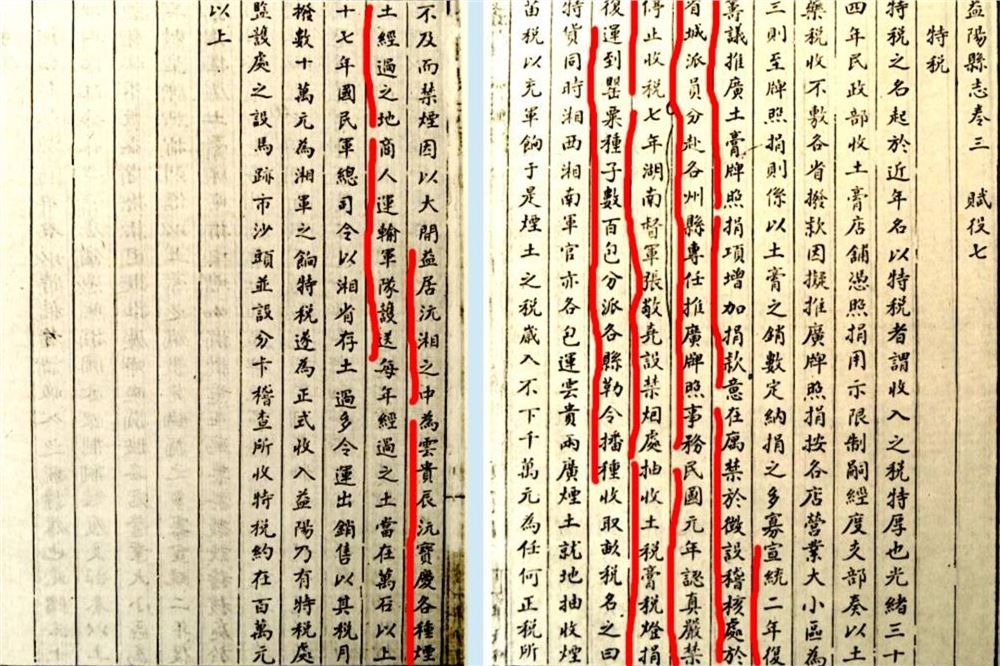 益陽縣志卷三　賦役七
特税
特税之名起於近年名以特税者謂收入之税特厚也光緒三十
四年民政部收土膏店鋪憑照捐用示限制嗣經度支部奏以土
藥税收不敷各省撥款因擬推廣牌照捐按各店營業大小區為
三則至牌照捐則係以土膏之銷數定納捐之多寡宣統二年復
籌議推廣土膏牌照捐項增加捐款意在厲禁於徵設稽核處於
省城派員分赴各州縣專任推廣牌照事務民國元年認真嚴禁
停止收税七年湖南督軍張敬尭設禁烟處抽收土税膏税燈捐
復運到罌粟種子數百包分派各縣勒令播種收取畝税名之曰
特貨同時湘西湘南軍官亦各包運雲貴兩廣煙土就地抽收煙
苗税以充軍餉于是煙土之税歲入不下千萬元為任何正税所
不及而禁煙因以大開益居沅湘之中為雲貴辰沅寶慶各種煙
土經過之地商人運輸軍隊護送每年經過之土當在萬石以上
十七年國民軍總司令以湘省存土過多令運出銷售以其税月
撥數十萬元為湘軍之餉特税遂為正式收入益陽乃有特税處
監設處之設馬跡市沙頭並設分卡稽查所收特税約在百萬元
以上